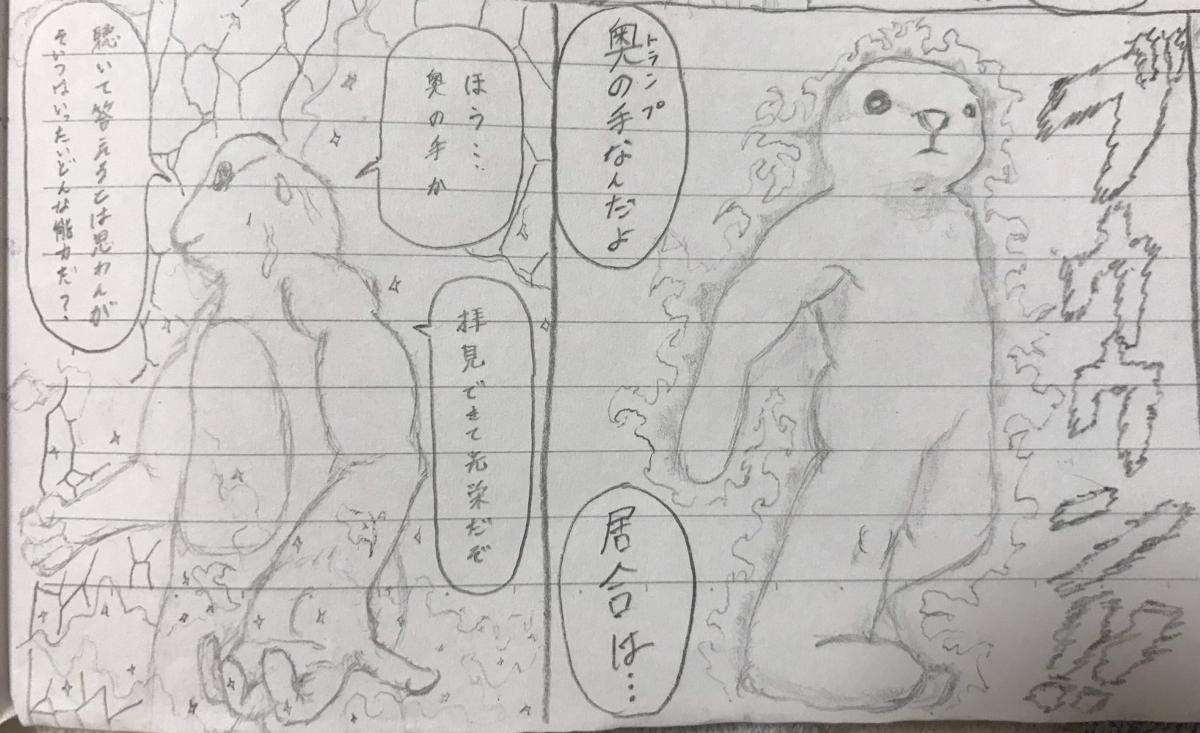 トランプ
奥の手なんだよ
居合は…
ほう…
奥の手か
拝見できて光栄だぞ
聴いて答えるとは思わんが
そいつはいったいどんな能力だ？